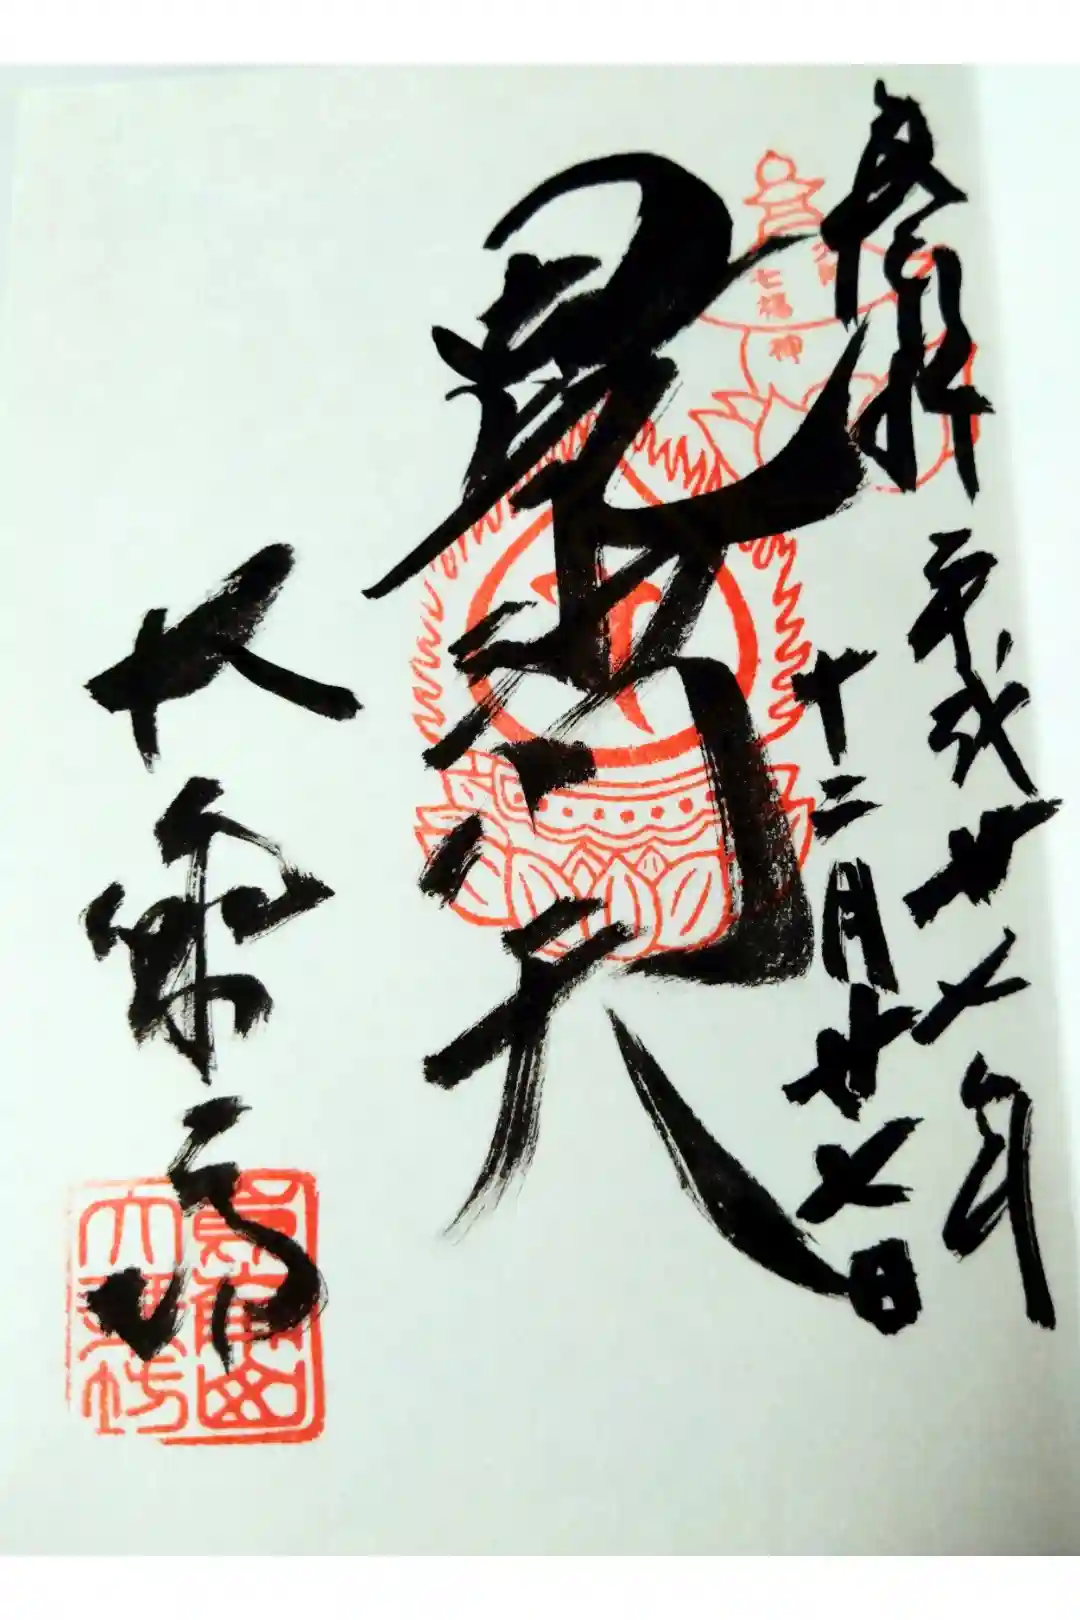 奉拝
平成廿七年
十二月廿七日
七福神
毘沙門天
大乗坊
大乗坊